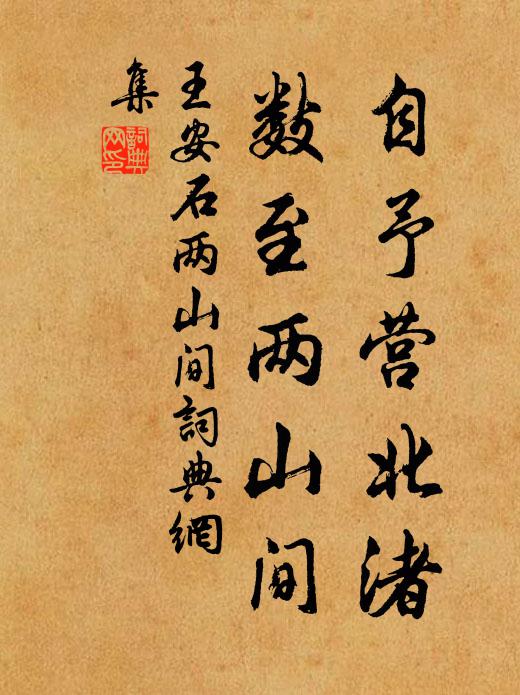 自予营北渚
数至两山间
王安石两山间詞典網
集
詞典网印